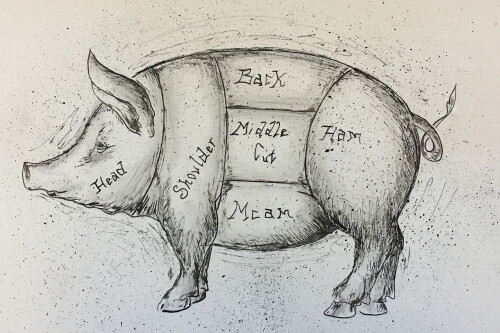 Back
Middle
Cut
Ham
Head
Shoulder
Mcam